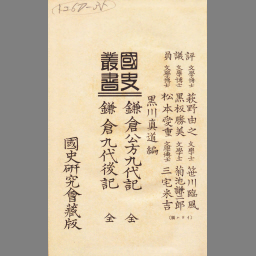 評議員
文學博士 萩野由之
文學博士 黒板勝美
文學博士 松本愛重
文學士 笹川臨風
文學士 菊池謙二郎
三宅米吉
(イロハ順)
黒川真道編
國史叢書
鎌倉公方九代記 全
鎌倉九代後記 全
國史研究會藏版